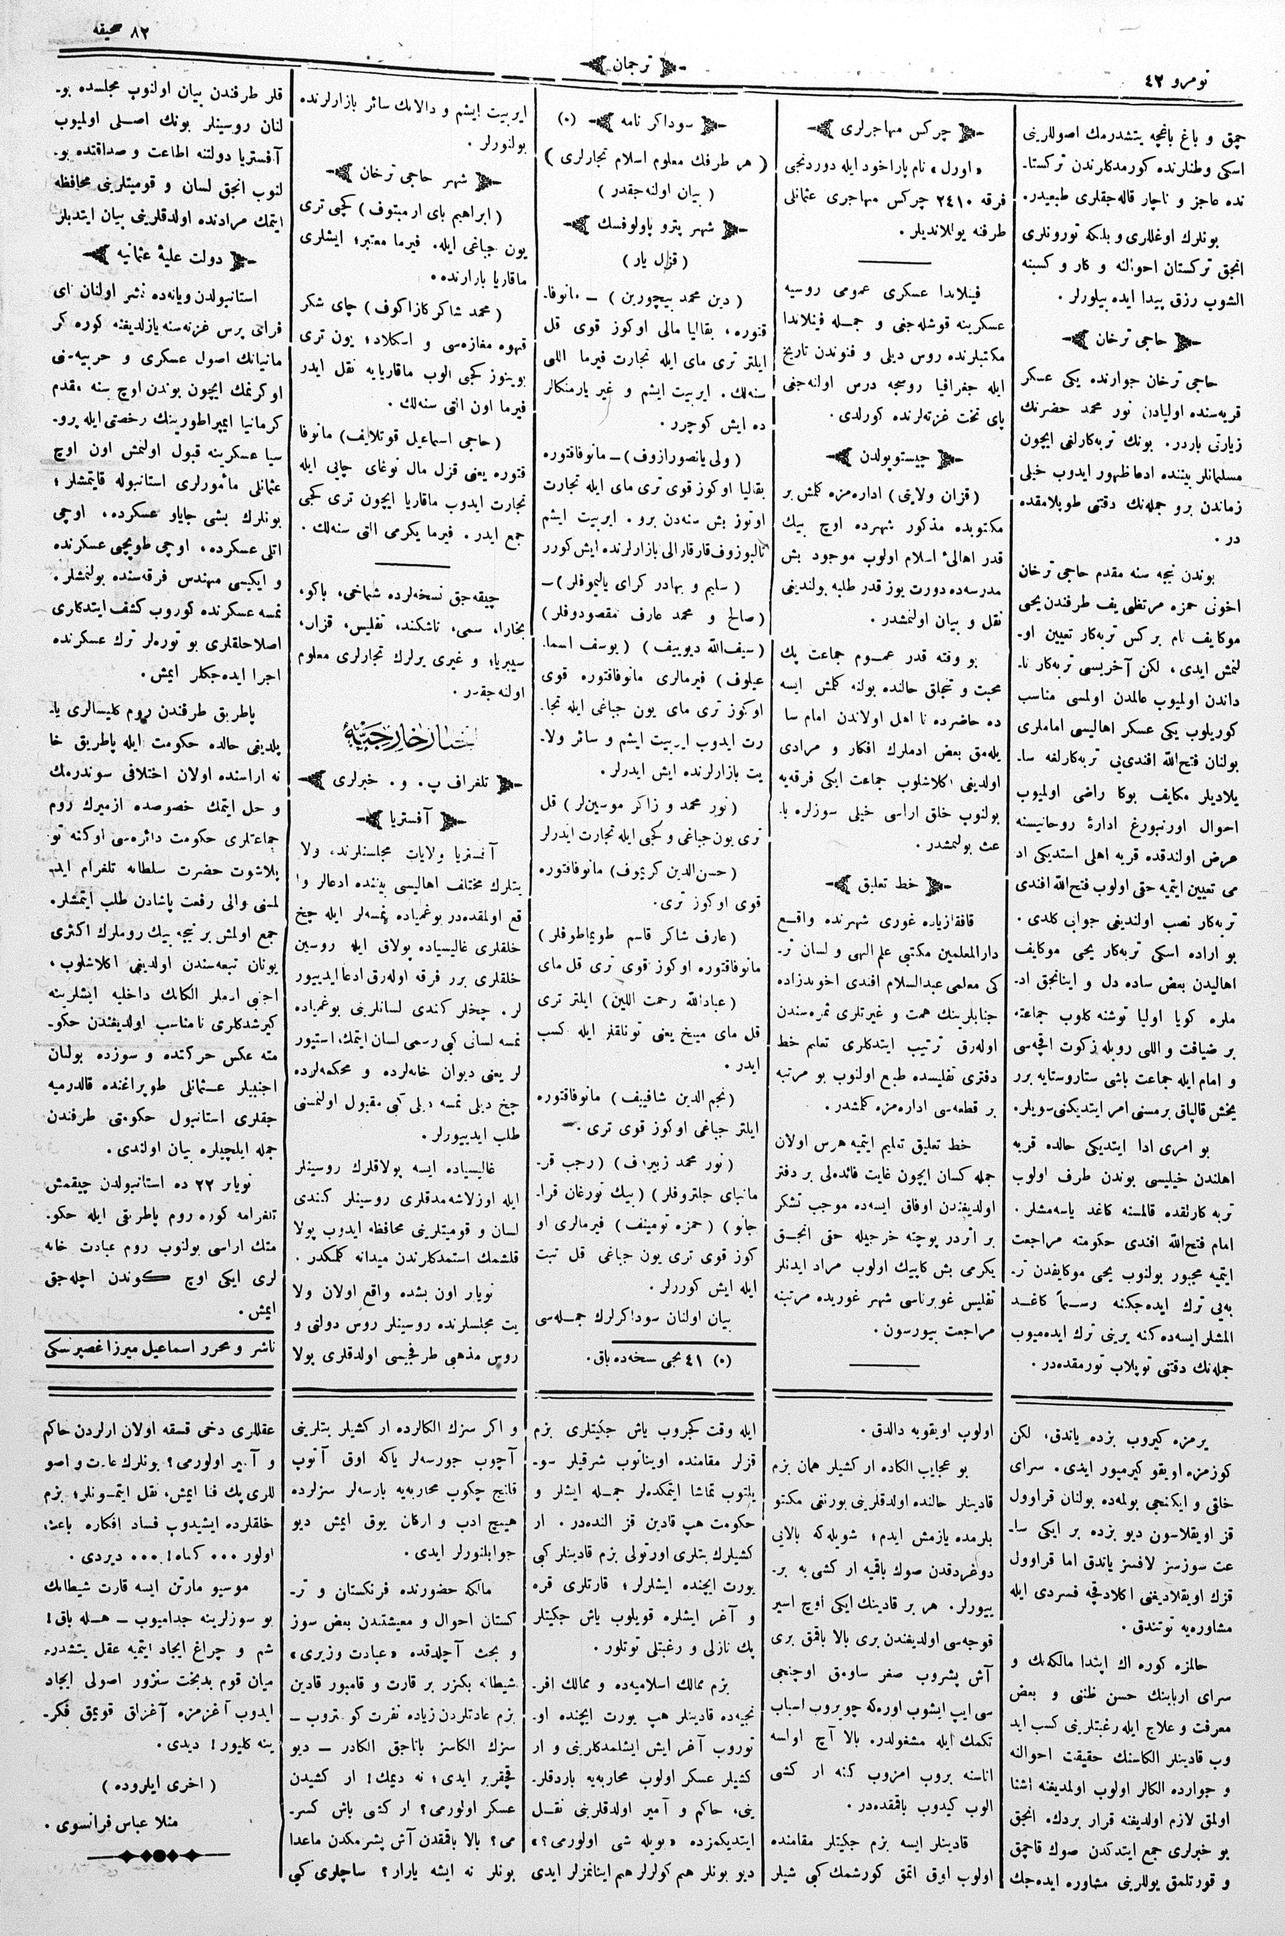 نومرو ٤٢
ترجمان
٨٢ صحیفه
چمق و باغ باغچه یتشدرمك اصوللرینی
اسكی وطنلرنده كورمدكلرندن تركستا-
نده عاجز و ناچار قاله‌جقلری طبیعیدر.
بونلرك اوغللری و بلكه تورونلری
انجق تركستان احوالنه و كار و كسبنه
الشوب رزق پیدا ایده بیلورلر.
حاجی ترخان
حاجی ترخان جوارنده یكی عسكر
قریه‌سنده اولیادن نور محمد حضرتك
زیارتی باردر. بونك تربه‌كارلغی ایچون
مسلمانلر بیننده ادعا ظهور ایدوب خیلی
زماندن برو جمله‌نك دقتی طوپلامقده
در.
بوندن نیجه سنه مقدم حاجی ترخان
اخونی حمزه مرتظی یف طرفندن یحیی
موكایف نام بر كس تربه‌كار تعیین او-
لنمش ایدی، لكن آخریسی تربه‌كار نا-
داندن اولمیوب عالمدن اولمسی مناسب
كوریلوب یكی عسكر اهالیسی اماملری
بولنان فتح‌الله افندی‌یی تربه‌كارلغه سا-
یلادیلر مكایف بوكا راضی اولمیوب
احوال اورنبورغ ادارهٔ روحانیسنه
عرض اولندقده قریه اهلی استدیكی اد
می تعیین ایتمیه حقی اولوب فتح‌الله افندی
تربه‌كار نصب اولندیغی جواب كلدی.
بو اراده اسكی تربه‌كار یحیی موكایف
اهالیدن بعض ساده دل و اینانجق اد-
ملره كویا اولیا توشنه كلوب جماعته
بر ضیافت و اللی روبله زكوت اقچه‌سی
و امام ایله جماعت باشی ستاروستایه برر
یخشی قالپاق برمسنی امر ایتدیكنی سویلر.
بو امری ادا ایتدیكی حالده قریه
اهلندن خیلیسی بوندن طرف اولوب
تربه كارلقده قالمسنه كاغد یاسه‌مشلر.
امام فتح‌الله افندی حكومته مراجعت
ایتمیه مجبور بولنوب یحیی موكایفدن تر-
به‌یی ترك ایده‌جكنه رسماً كاغد
المشلر ایسه‌ده كنه یرینی ترك ایده‌میوب
جمله‌نك دقتی توپلاب تورمقده‌در.
چركس مهاجرلری
«اورل» نام پاراخود ایله دوردنجی
فرقه ٢٤١٠ چركس مهاجری عثمانلی
طرفنه یوللاندیلر.
فینلاندا عسكری عمومی روسیه
عسكرینه قوشله‌جغی و جمله فینلاندا
مكتبلرنده روس دیلی و فنوندن تاریخ
ایله جغرافیا روسجه درس اولنه‌جغی
پای تخت غزته‌لرنده كورلدی.
چیستوپولدن
(قزان ولایتی) اداره‌مزه كلمش بر
مكتوبده مذكور شهرده اوچ بیك
قدر اهالیٔ اسلام اولوب موجود بش
مدرسه‌ده دورت یوز قدر طلبه بولندیغی
نقل و بیان اولنمشدر.
بو وقته قدر عموم جماعت پك
محبت و تنجلق حالنده بولنه كلمش ایسه
ده حاضرده نا اهل اولاندن امام سا
یله‌مق بعض ادملرك افكار و مرادی
اولدیغی اكلاشلوب جماعت ایكی فرقه‌یه
بولنوب خلق اراسی خیلی سوزلره با-
عث بولنمشدر.
خط تعلیق
قافقازیاده غوری شهرنده واقع
دارالمعلمین مكتبی علم الهی و لسان تر-
كی معلمی عبدالسلام افندی اخوندزاده
جنابلرینك همت و غیرتلری ثمره‌سندن
اوله‌رق ترتیب ایتدكلری تعلیم خط
دفتری تفلیسده طبع اولنوب بو مرتبه
بر قطعه‌سی اداره‌مزه كلمشدر.
خط تعلیق تعلیم ایتمیه هرس اولان
جمله كسان ایچون غایت فائده‌لی بر دفتر
اولدیغندن اوفاق ایسه‌ده موجب تشكر
بر اثردر پوچته خرجیله حقی انجق
یكرمی بش كاپیك اولوب مراد ایدنلر
تفلیس غوبرناسی شهر غوریده مرتبنه
مراجعت بیورسون.
سوداكر نامه (٥)
(هر طرفك معلوم اسلام تجارلری)
(بیان اولنه جقدر)
شهر پترو پاولوفسك
(قزل یار)
(دین محمد بیچورین) — مانوفا-
قتوره، بقالیا مالی اوكوز قوی قل
ایلتر تری مای ایله تجارت فیرما اللی
سنه‌لك. ایربیت ایشم و غیر یارمنكالر
ده ایش كوچرر.
(ولی یانصورازوف) — مانوفاقتوره
بقالیا اوكوز قوی تری مای ایله تجارت
اوتوز بش سنه‌دن برو. ایربیت ایشم
تالبوزوف قارقارالی بازارلرنده ایش كورر
(سلیم و بهادر كرای یالیموفلر) —
(صالح و محمد عارف مقصودوفلر)
(سیف‌الله دیوییف) (یوسف اسما-
عیلوف) فیرمالری مانوفاقتوره قوی
اوكوز تری مای یون جباغی ایله تجا-
رت ایدوب ایربیت ایشم و سائر ولا-
یت بازارلرنده ایش ایدرلر.
(نور محمد و زاكر موسین‌لر) قل
تری یون جباغی و كجی ایله تجارت ایدرلر
(حسن‌الدین كریموف) مانوفاقتوره
قوی اوكوز تری.
(عارف شاكر قاسم طویماطوفلر)
مانوفاقتوره اوكوز قوی تری قل مای
(عبادالله رحمت اللین) ایلتر تری
قل مای میبخ یعنی تونلقلر ایله كسب
ایدر.
(نجم الدین شافییف) مانوفاقتوره
ایلتر جباغی اوكوز قوی تری.
(نور محمد زبیرف) (رجب قر-
مانبای جلتروفلر) (بیك تورغان قرا-
جانو) (حمزه تومینف) فیرمالری او
كوز قوی تری یون جباغی قل تبت
ایله ایش كوررلر.
بیان اولنان سوداكرلرك جمله‌سی
(٥) ٤١ نجی نسخه‌ده باق.
ایربیت ایشم و دالانك سائر بازارلرنده
بولنورلر.
شهر حاجی ترخان
(ابراهیم بای ارمبتوف) كچی تری
یون جباغی ایله. فیرما معتبر؛ ایشلری
ماقاریا بازارنده.
(محمد شاكر كازاكوف) چای شكر
قهوه مغازه‌سی و اسكلاد؛ یون تری
بوینوز كجی الوب ماقاریایه نقل ایدر
فیرما اون التی سنه‌لك.
(حاجی اسماعیل قوتلایف) مانوفا
قتوره یعنی قزل مال نوغای چایی ایله
تجارت ایدوب ماقاریا ایچون تری كجی
جمع ایدر. فیرما یكرمی التی سنه‌لك.
چیقه‌جق نسخه‌لرده شماخی، باكو،
بخارا، سمی، تاشكند، تفلیس، قزار،
سیبریا؛ و غیری یرلرك تجارلری معلوم
اولنه جقدر.
اخبار خارجیه
تلغراف پ. و. خبرلری
آفستریا
آفستریا ولایات مجلسلرند، ولا
یتلرك مختلف اهالیسی بیننده ادعالر وا
قع اولمقده‌در بوغمیاده نمسه‌لر ایله چخ
خلقلری غالیسیاده پولاق ایله روسین
خلقلری برر فرقه اوله‌رق ادعا ایدییور
لر. چخلر كندی لسانلرینی بوغمیاده
نمسه لسانی كبی رسمی لسان ایتمك استیور
لر یعنی دیوان خانه‌لرده و محكمه‌لرده
چخ دیلی نمسه دیلی كبی مقبول اولنمسنی
طلب ایدییورلر.
غالیسیاده ایسه پولاقلرك روسینلر
ایله اوزلاشه‌مدقلری روسینلر كندی
لسان و قومیتلرینی محافظه ایدوب پولا
قلشمك استمدكلرندن میدانه كلمكدر.
نویار اون بشده واقع اولان ولا
یت مجلسلرنده روسینلر روس دولتی و
روس مذهبی طرفجیسی اولدقلری پولا
قلر طرفندن بیان اولنوب مجلسده بو-
لنان روسینلر بونك اصلی اولمیوب
آفستریا دولتنه اطاعت و صداقتده بو-
لنوب انجق لسان و قومیتلرینی محافظه
ایتمك مرادنده اولدقلرینی بیان ایتدیلر
دولت علیهٔ عثمانیه
استانبولدن ویانه‌ده نشر اولنان نای
فرای پرس غزته‌سنه یازلدیغنه كوره كر
مانیانك اصول عسكری و حربیه‌سنی
اوكرنمك ایچون بوندن اوچ سنه مقدم
كرمانیا ایمپراطورینك رخصتی ایله پرو-
سیا عسكرینه قبول اولنمش اون اوچ
عثمانلی مأمورلری استانبوله قایتمشلر؛
بونلرك بشی جایاو عسكرده، اوچی
اتلی عسكرده، اوچی طوپچی عسكرنده
و ایكیسی مهندس فرقه‌سنده بولنمشلر.
نمسه عسكرنده كوروب كشف ایتدكلری
اصلاحلقلری بو توره‌لر ترك عسكرنده
اجرا ایده‌جكلر ایمش.
پاطریق طرفندن روم كلیسالری یا-
پلدیغی حالده حكومت ایله پاطریق خا
نه اراسنده اولان اختلافی سوندرمك
و حل ایتمك خصوصده ازمیرك روم
جماعتلری حكومت دائره‌سی اوكنه تو
پلاشوب حضرت سلطانه تلغرام ایدیـ
لمسنی والی رفعت پاشادن طلب ایتمشلر.
جمع اولمش بر نیجه بیك روملرك اكثری
یونان تبعه‌سندن اولدیغی اكلاشلوب،
اجنبی ادملر الكانك داخلیه ایشلرینه
كیرشدكلری نامناسب اولدیغندن حكو-
مته عكس حركتده و سوزده بولنان
اجنبیلر عثمانلی طوپراغنده قالدرمیه
جقلری استانبول حكومتی طرفندن
جمله ایلچیلره بیان اولندی.
نویار ٢٢ ده استانبولدن چیقمش
تلغرامه كوره روم پاطریقی ایله حكو-
متك اراسی بولنوب روم عبادت خانه
لری ایكی اوچ كوندن اچله‌جق
ایمش.
ناشر و محرر اسماعیل میرزا غصپرنسكی
یرمزه كیروب بزده یاتدق، لكن
كوزمزه اویقو كیرمیور ایدی. سرای
خلقی و ایكنجی بولمه‌ده بولنان قراوول
قز اویقلاسون دیو بزده بر ایكی سا-
عت سوزسز لافسز یاتدق اما قراوول
قزك اویقلادیغنی اكلادقچه فسردی ایله
مشاوره‌یه توتندق.
حالمزه كوره اك ابتدا مالكه‌نك و
سرای اربابنك حسن ظننی و بعض
معرفت و علاج ایله رغبتلرینی كسب اید
وب قادینلر الكاسنك حقیقت احوالنه
و جوارده الكالر اولوب اولمدیغنه اشنا
اولمق لازم اولدیغنه قرار بردك. انجق
بو خبرلری جمع ایتدكدن صوك قاچمق
و قورتلمق یوللرینی مشاوره ایده‌جك
اولوب اویقویه دالدق.
بو عجایب الكاده ار كشیلر همان بزم
قادینلر حالنده اولدقلرینی بورنغی مكتو
بلرمده یازمش ایدم؛ شویله‌كه بالایی
دوغردقدن صوك باقمیه ار كشی یه بر-
ییورلر. هر بر قادینك ایكی اوچ اسیر
قوجه‌سی اولدیغندن بری بالا باقمق بری
آش پشروب صغر ساومق اوچنجی
سی ایپ ایشوب اورمكه چویروب اسباب
تكمك ایله مشغولدر. بالا آچ اولسه
اناسنه بروب امزوب كنه ار كشی
الوب كیدوب باقمقده‌در.
قادینلر ایسه بزم جكیتلر مقامنده
اولوب اوق اتمق كورشمك كبی شیلر
ایله وقت كجروب یاش جكیتلری بزم
قزلر مقامنده اویناتوب شرقیلر سو-
یلتوب تماشا ایتمكده‌لر جمله ایشلر و
حكومت هپ قادین قز النده‌در. ار
كشیلرك بتلری اورتولی بزم قادینلر كبی
یورت ایچنده ایشلرلر؛ قارتلری قره
و آغر ایشلره قویلوب یاش جكیتلر
پك نازلی و رغبتلی توتلور.
بزم ممالك اسلامیه‌ده و ممالك افر-
نجیه‌ده قادینلر هپ یورت ایچنده او-
توروب آغر ایش ایشلمدكلرینی و ار
كشیلر عسكر اولوب محاربه‌یه باردقلر-
ینی، حاكم و آمیر اولدقلرینی نقل
ایتدیكمزده «بویله شی اولورمی؟»
دیو بونلر هم كولرلر هم اینانمزلر ایدی
و اكر سزك الكالرده ار كشیلر بتلرینی
آچوب جورسه‌لر یاكه اوق آتوب
قانج چكوب محاربه‌یه بارسه‌لر سزلرده
هیچ ادب و اركان یوق ایمش دیو
جوابلنورلر ایدی.
مالكه حضورنده فرنكستان و تر-
كستان احوال و معیشتندن بعض سوز
و بحث آچلدقده «عبادت وزیری»
شیطانه بكنزر بر قارت و قامبور قادین
بزم عادتلردن زیاده نفرت كوستروب —
سزك الكاسز باناجق الكادر — دیو
قچقرر ایدی؛ نه دیمك! ار كشیدن
عسكر اولورمی؟ ار كشی باش كسر-
می؟ بالا باقمقدن آش پشرمكدن ماعدا
بونلر نه ایشه یارار؟ ساچلری كبی
عقللری دخی قسقه اولان ارلردن حاكم
و آمیر اولورمی؟ بونلرك عادت و اصو
للری پك فنا ایمش، نقل ایتمسونلر؛ بزم
خلقلرده ایشیدوب فساد افكاره باعث
اولور ... كناه! ... دیردی.
موسیو مارتن ایسه قارت شیطانك
بو سوزلرینه چدامیوب — هله باق!
شم و چراغ ایجاد ایتمیه عقل یتشدرر
میان قوم بدبخت سنزور اصولی ایجاد
ایدوب آغزمزه آغزاق قویمق فكر-
ینه كلیور! دیدی.
(اخری ایلروده)
منلا عباس فرانسوی.